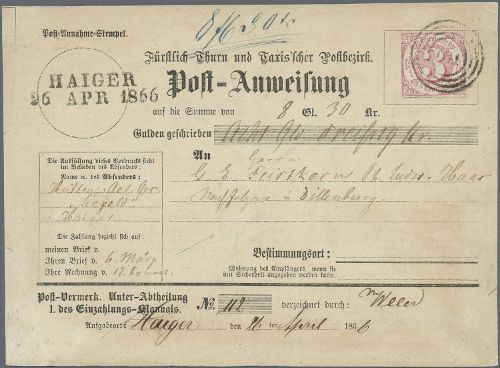 8 fl 30 kr
Post-Annahme-Stempel.
Fürstlich Thurn und Taxis'scher Postbezirk.
HAIGER
26 APR 1866
Post-Anweisung
auf die Summe von 8 Gl. 30 Kr.
Gulden geschrieben Acht Gld dreißig kr.
An
Herrn
G. E.
in Dillenburg.
Die Ausfüllung dieses Vordrucks steht
im Belieben des Absenders:
Name ec. des Absenders:
Haiger
Die Zahlung bezieht sich auf:
meinen Brief v.
Ihren Brief v. 6. März
Ihre Rechnung v. 17.
Bestimmungsort:
Wohnung des Empfängers, wenn sie
mit Sicherheit angegeben werden kann:
Post-Vermerk. Unter-Abtheilung
I. des Einzahlungs-Manuals.
No 112 verzeichnet durch:
Aufgabeort: Haiger den 26 ten April 1866
3